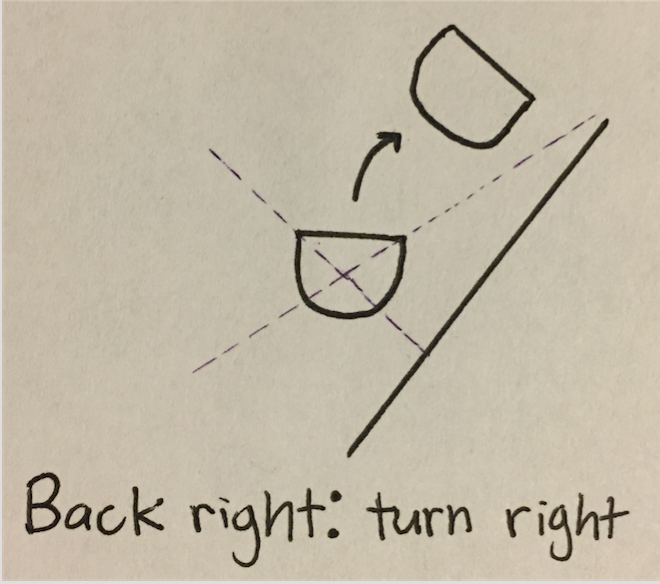 Back right: turn right